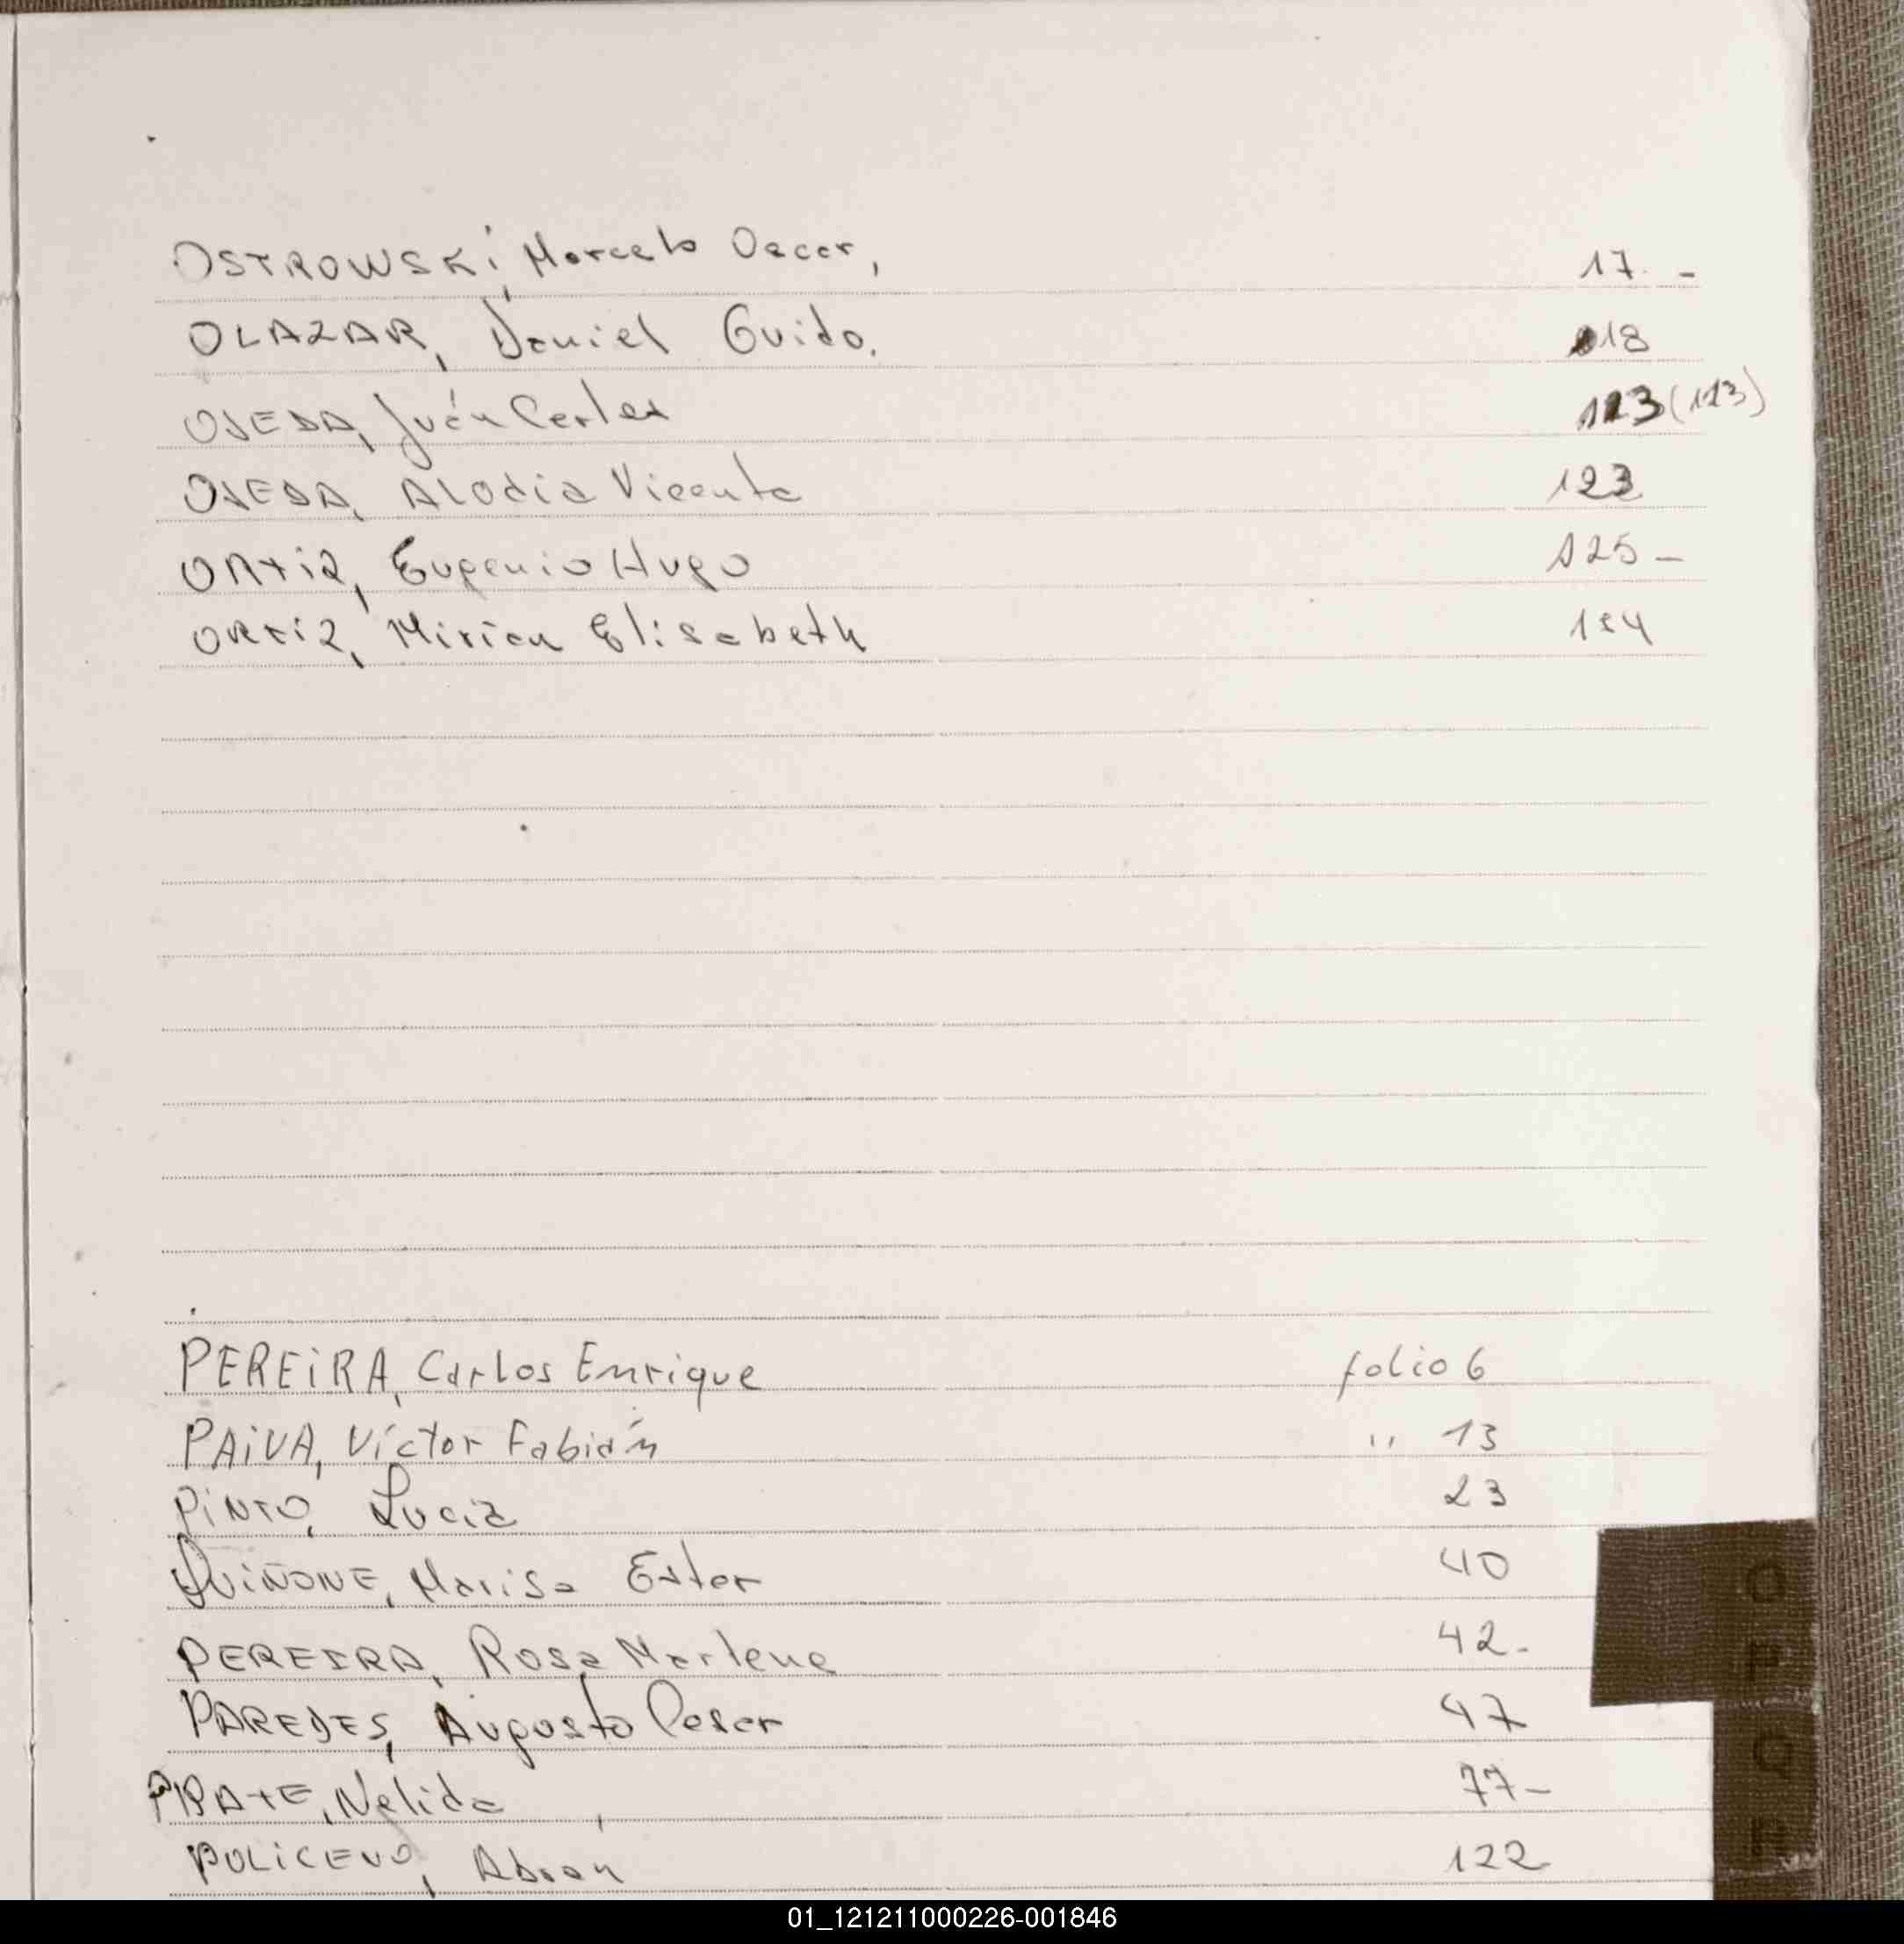 OSTROWSKi, Marcelo Oscar, 17. -
OLAZAR, Daniel Guido. 18
OJEDA, Juán Carlos 123 (123)
OJEDA, ALodia Vicenta 123
ORtiz, Eugenio Hugo 125 -
ORtiz, Mirian Elisabeth 154
PEREiRA, Carlos Enrique folio 6
PAiVA, Víctor Fabián " 13
PiNTO, Lucia 23
QUiÑONE, Marisa Ester 40
PEREIRA, Rosa Marlene 42.-
PAREDES, Augusto Cesar 47
PRAtE, Nelida 77-
POLiCENO, Abran 122
O
P
Q
01_121211000226-001846